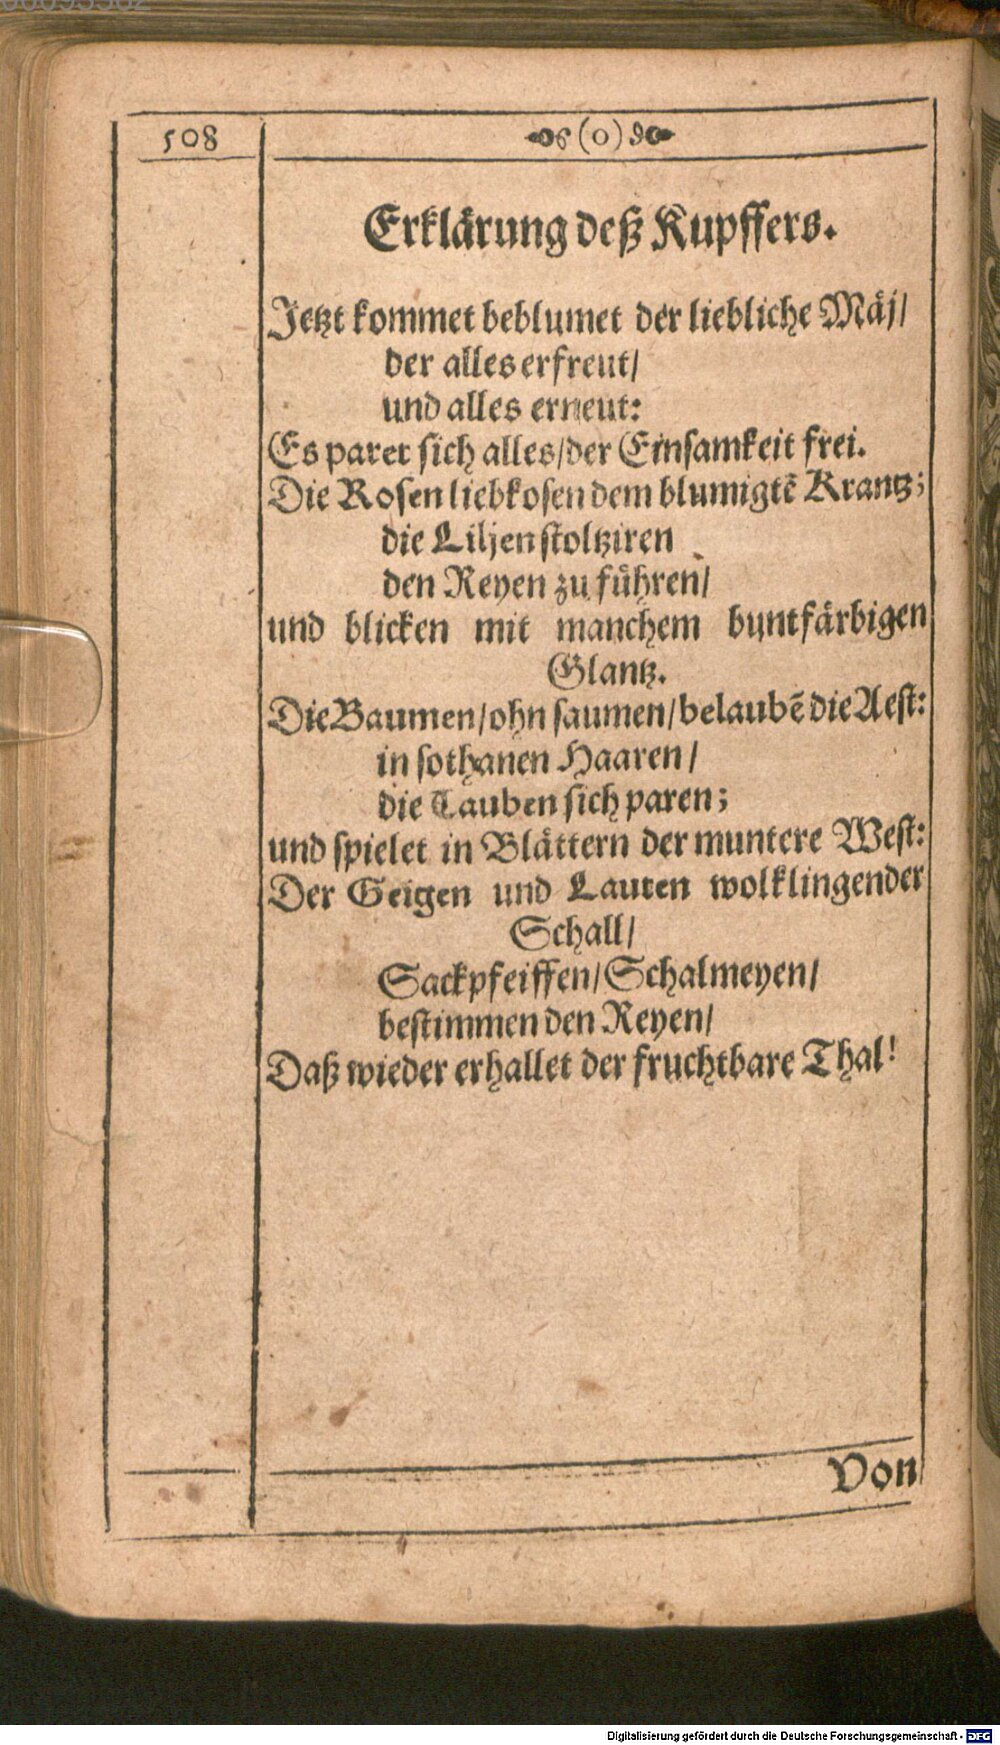 508
(0)
Erklärung deß Kupffers.
Jetzt kommet beblumet der liebliche Mäj/
der alles erfreut/
und alles erneut:
Es paret sich alles/der Einsamkeit frei.
Die Rosen liebkosen dem blumigtē Krantz;
die Liljen stoltziren
den Reyen zu führen/
und blicken mit manchem buntfärbigen
Glantz.
Die Baumen/ohn saumen/belaubē die Aest:
in sothanen Haaren/
die Tauben sich paren;
und spielet in Blättern der muntere West:
Der Geigen und Lauten wolklingender
Schall/
Sackpfeiffen/Schalmeyen/
bestimmen den Reyen/
Daß wieder erhallet der fruchtbare Thal!
Von
Digitalisierung gefördert durch die Deutsche Forschungsgemeinschaft - DFG